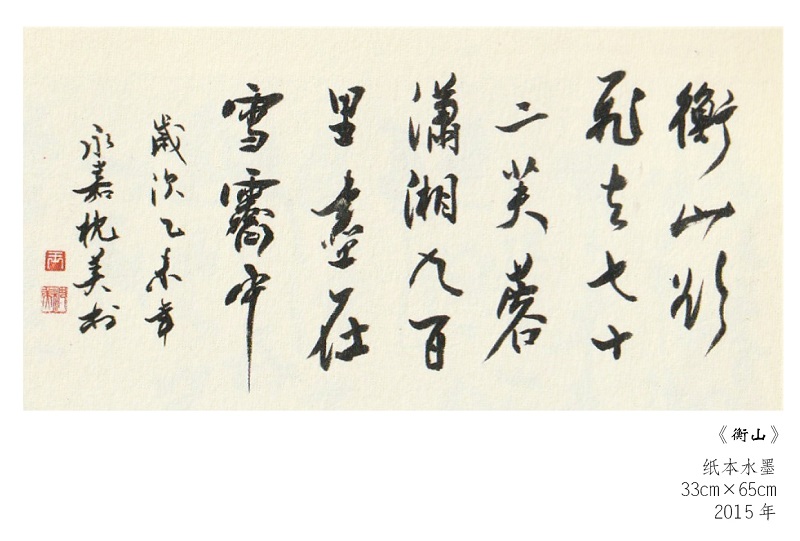 衡山欲
飛去七十
二芙蓉
瀟湘九百
里盡在
雪霽中
歲次乙未年
永嘉枕美
《衡山》
纸本水墨
33cm×65cm
2015年